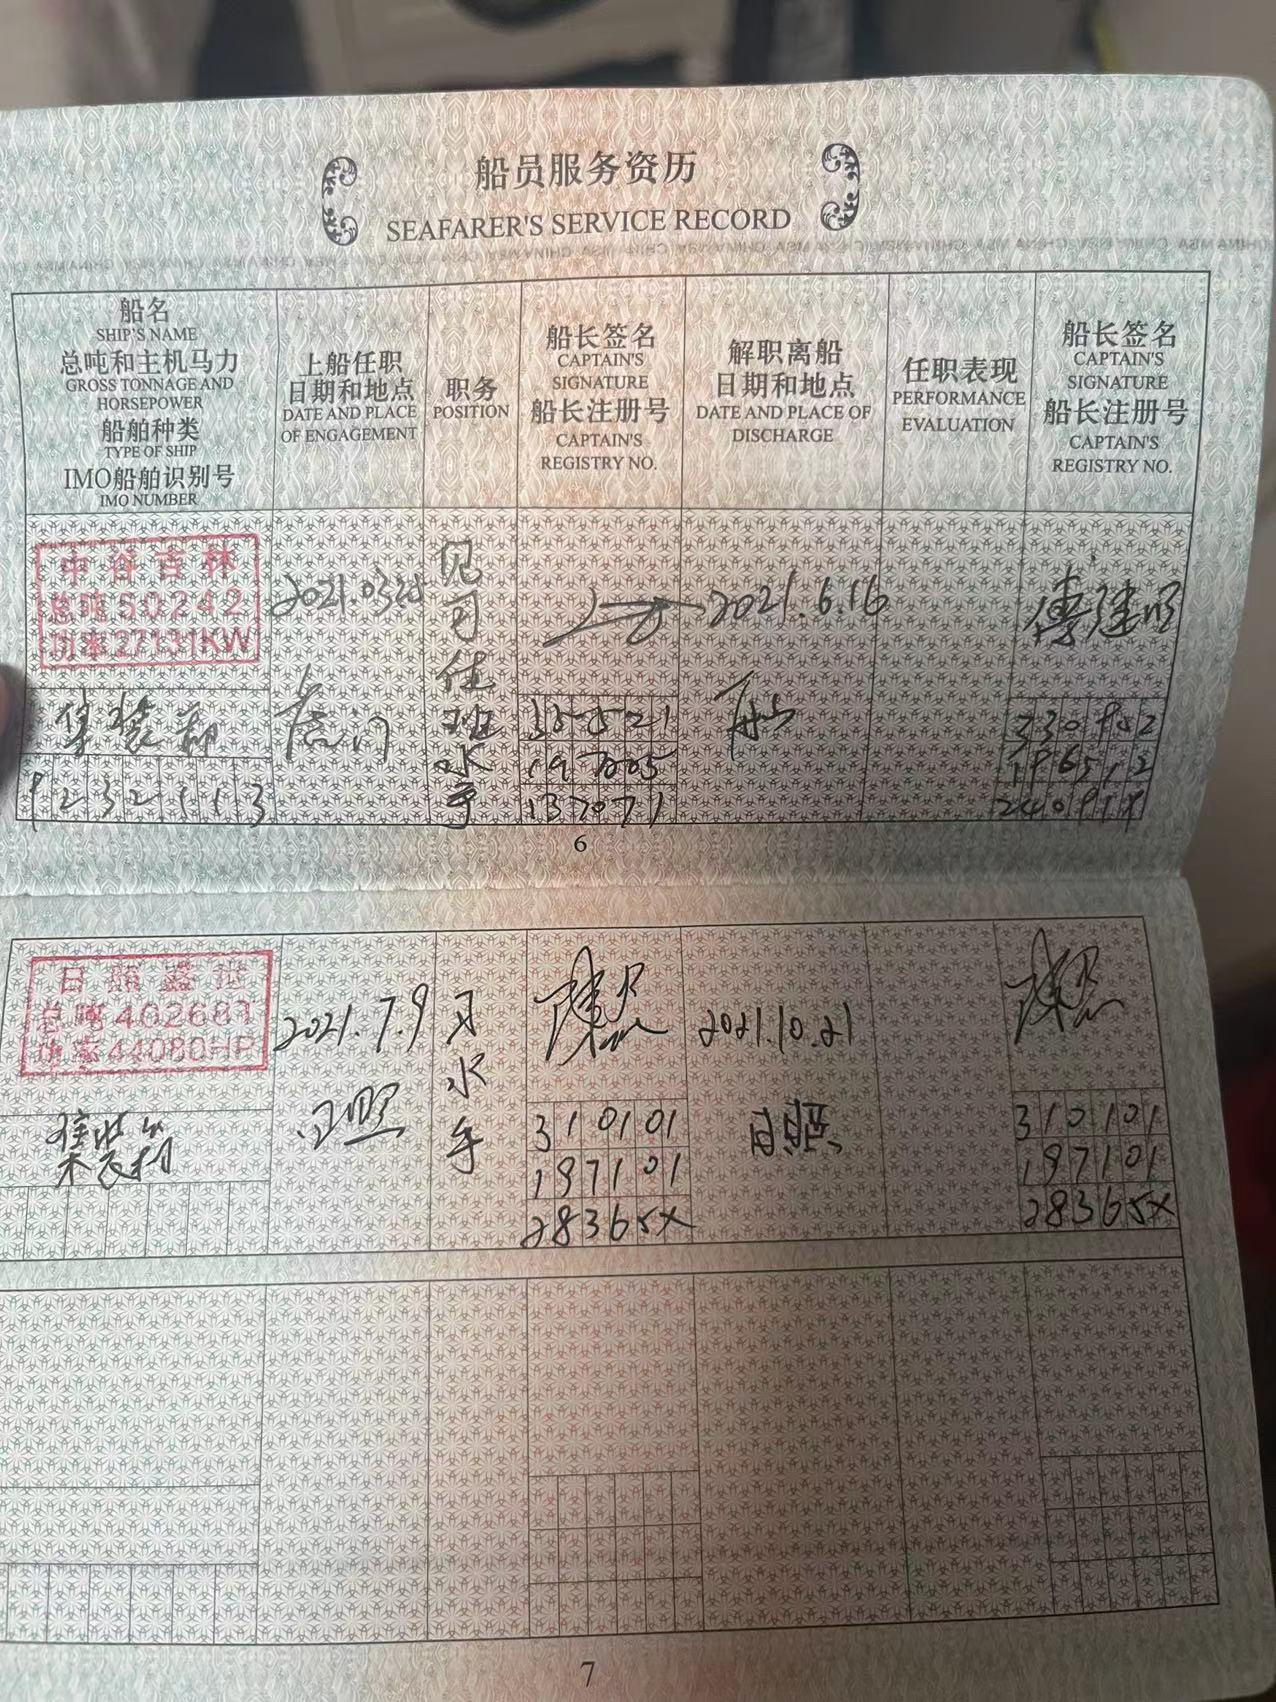 船员服务资历
SEAFARER'S SERVICE RECORD
船名
SHIP'S NAME
总吨和主机马力
GROSS TONNAGE AND
HORSEPOWER
船舶种类
TYPE OF SHIP
IMO船舶识别号
IMO NUMBER
上船任职
日期和地点
DATE AND PLACE
OF ENGAGEMENT
职务
POSITION
船长签名
CAPTAIN'S
SIGNATURE
船长注册号
CAPTAIN'S
REGISTRY NO.
解职离船
日期和地点
DATE AND PLACE OF
DISCHARGE
任职表现
PERFORMANCE
EVALUATION
船长签名
CAPTAIN'S
SIGNATURE
船长注册号
CAPTAIN'S
REGISTRY NO.
中谷吉林
总吨50242
功率27131KW
集装箱
9232113
2021.03.25
虎门
见习值班水手
2021.6.16
6
日照
总吨40268T
功率44080HP
集装箱
2021.7.9
日照
水手
310101
197101
28365X
2021.10.21
日照
310101
197101
28365X
7